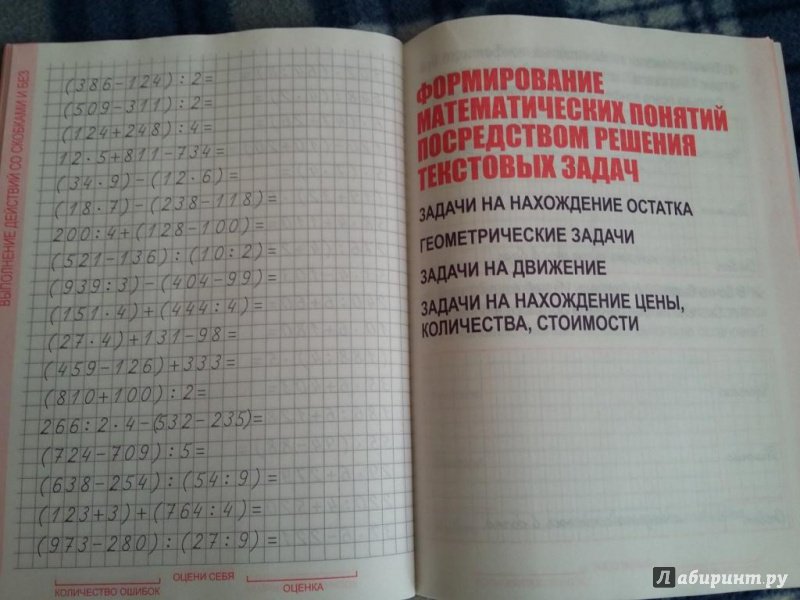 ВЫПОЛНЕНИЕ ДЕЙСТВИЙ СО СКОБКАМИ И БЕЗ
(386-124):2=
(509-311):2=
(124+248):4=
12·5+811-734=
(34·9)-(12·6)=
(18·7)-(238-118)=
200:4+(128-100)=
(521-136):(10:2)=
(939:3)-(404-99)=
(151·4)+(444:4)=
(27·4)+131-98=
(459-126)+333=
(810+100):2=
266:2·4-(532-235)=
(724-709):5=
(638-254):(54:9)=
(123+3)+(764:4)=
(973-280):(27:9)=
КОЛИЧЕСТВО ОШИБОК
ОЦЕНИ СЕБЯ
ОЦЕНКА
ФОРМИРОВАНИЕ
МАТЕМАТИЧЕСКИХ ПОНЯТИЙ
ПОСРЕДСТВОМ РЕШЕНИЯ
ТЕКСТОВЫХ ЗАДАЧ
ЗАДАЧИ НА НАХОЖДЕНИЕ ОСТАТКА
ГЕОМЕТРИЧЕСКИЕ ЗАДАЧИ
ЗАДАЧИ НА ДВИЖЕНИЕ
ЗАДАЧИ НА НАХОЖДЕНИЕ ЦЕНЫ,
КОЛИЧЕСТВА, СТОИМОСТИ
Лабиринт.ру